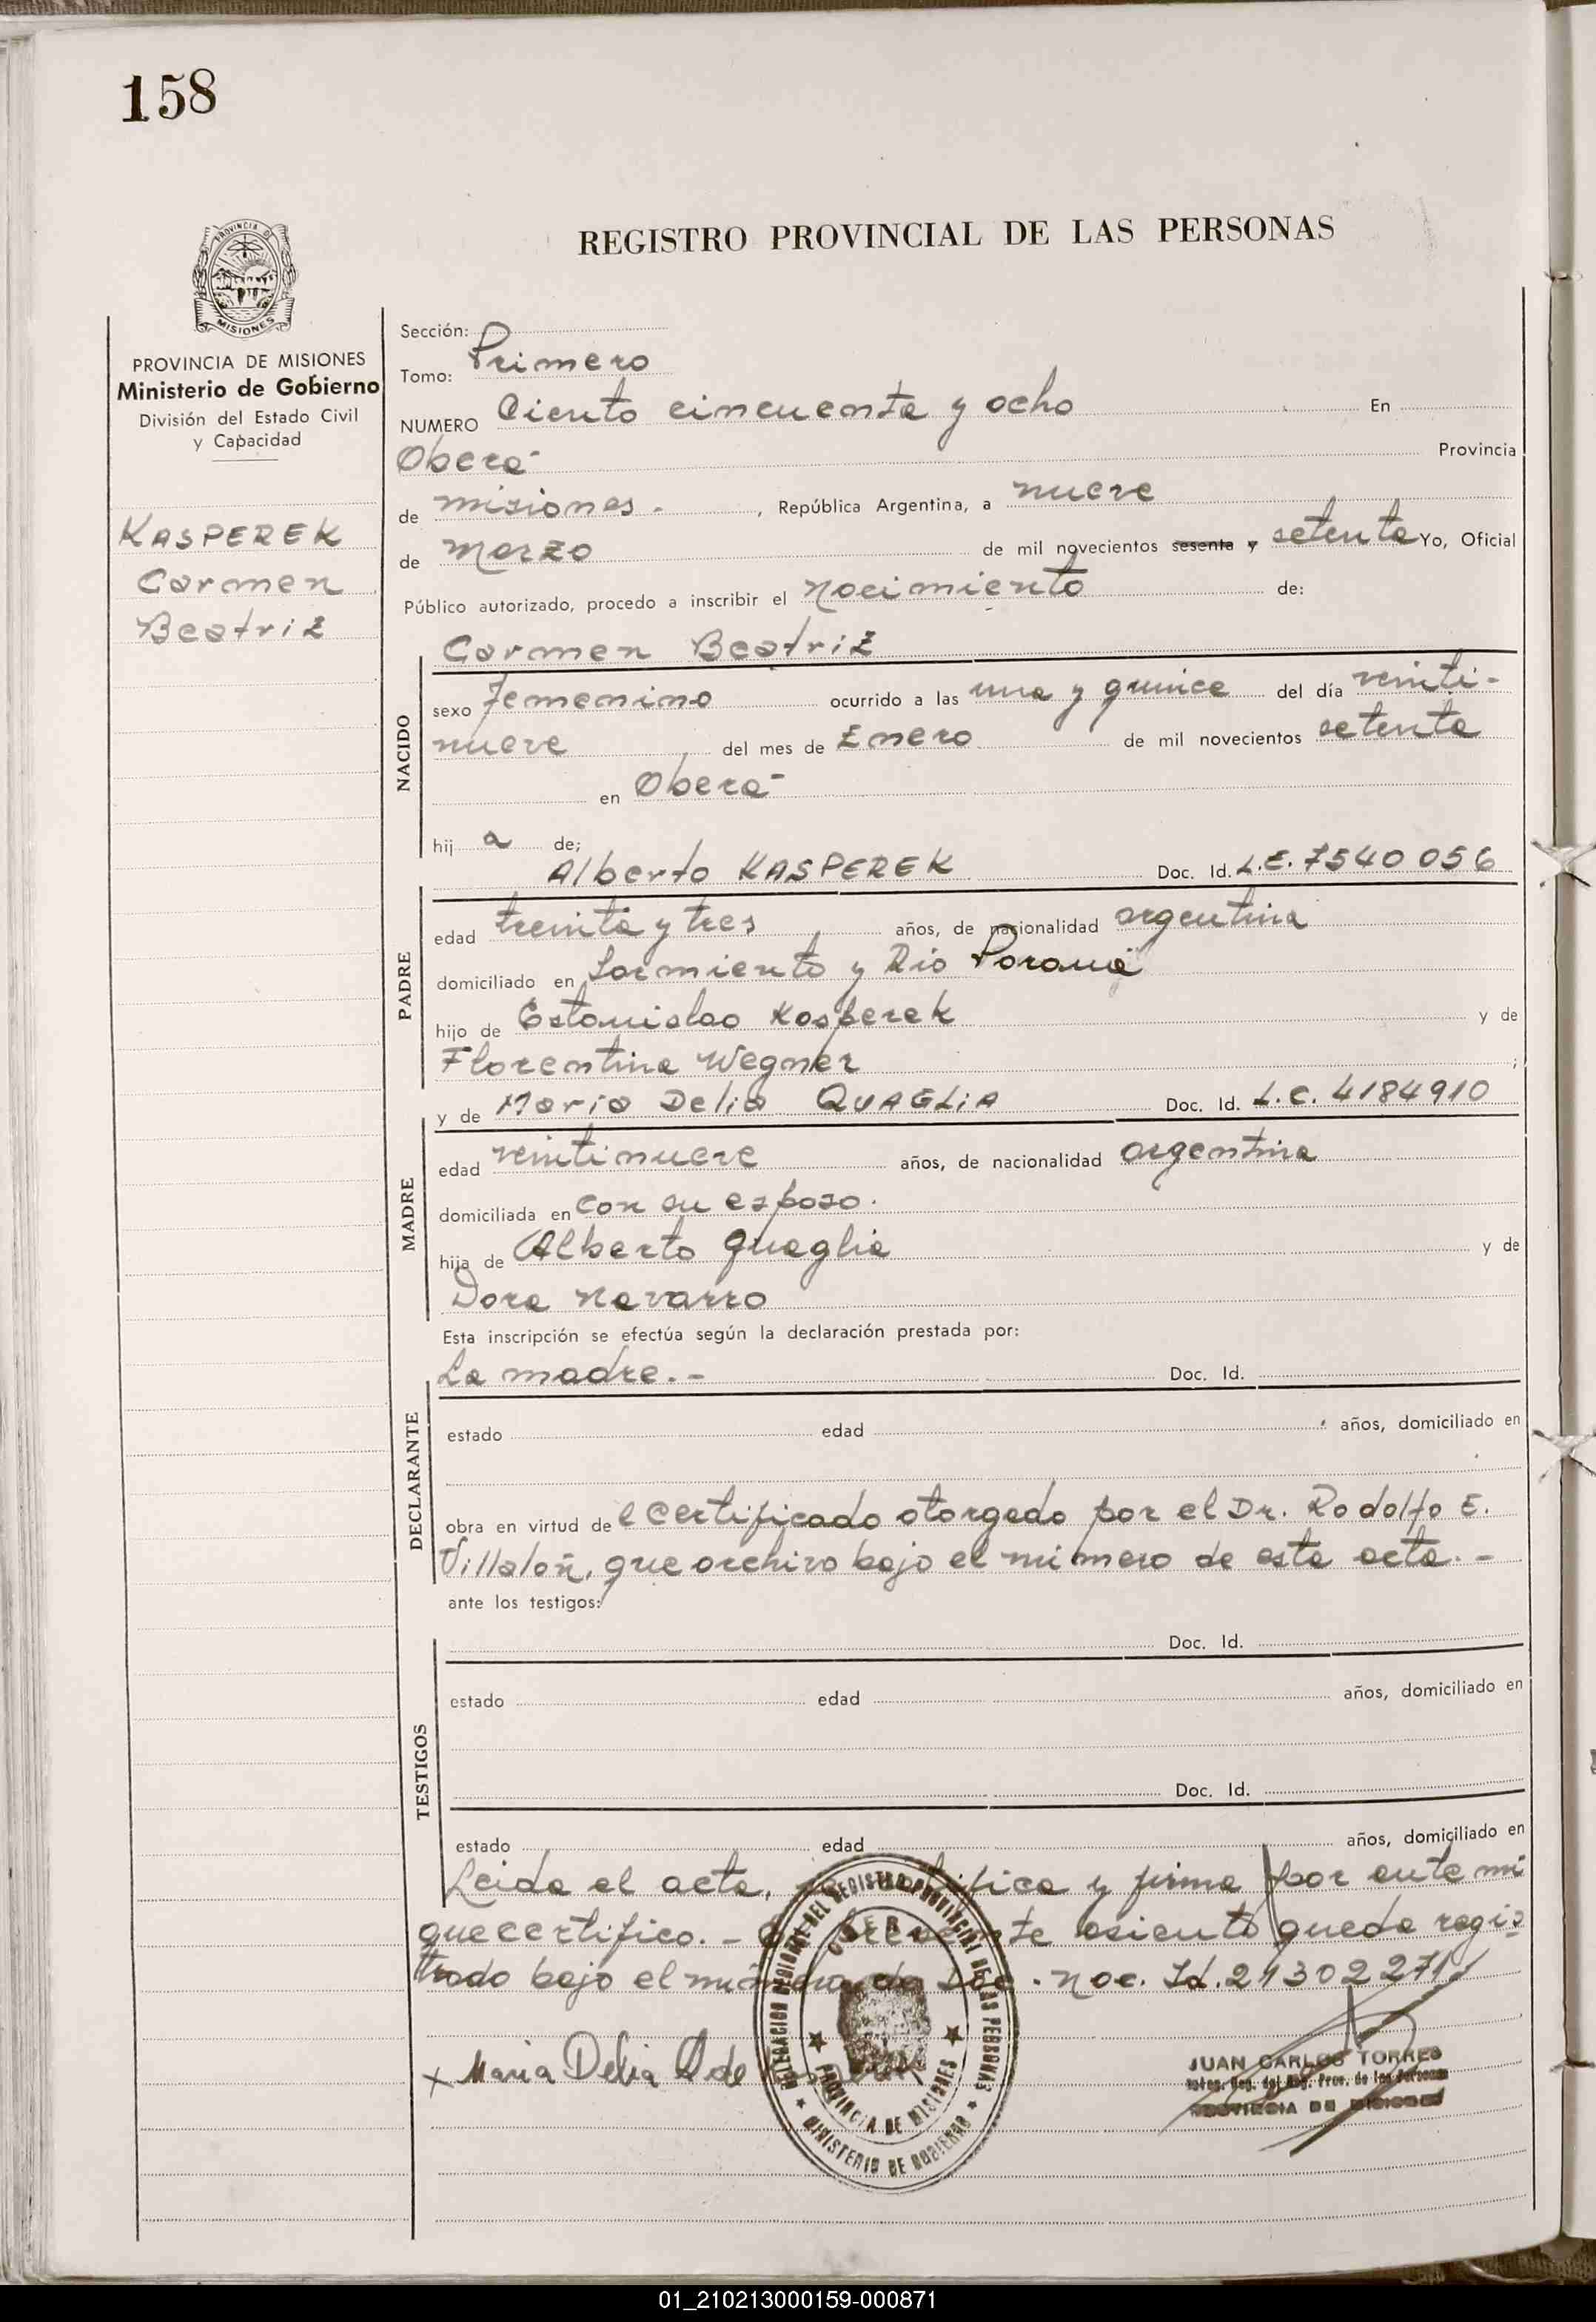 158
REGISTRO PROVINCIAL DE LAS PERSONAS
PROVINCIA DE MISIONES
Ministerio de Gobierno
División del Estado Civil
y Capacidad
KASPEREK
Carmen
Beatriz
Sección:
Tomo: Primero
NUMERO Ciento cincuenta y ocho En
Oberá Provincia
de misiones. , República Argentina, a nueve
de Marzo de mil novecientos sesenta y setenta Yo, Oficial
Público autorizado, procedo a inscribir el nacimiento de:
Carmen Beatriz
NACIDO
sexo femenino ocurrido a las una y quince del día veinti-
nueve del mes de Enero de mil novecientos setenta
en Oberá
hij a de;
Alberto KASPEREK Doc. Id. L.E. 7540056
PADRE
edad treinta y tres años, de nacionalidad argentina
domiciliado en Sarmiento y Rio Paraná
hijo de Estanislao Kasperek y de
Florentina Wegner ;
y de Maria Delia QUAGLIA Doc. Id. L.C. 4184910
MADRE
edad veintinueve años, de nacionalidad argentina
domiciliada en con su esposo.
hija de Alberto Quaglia y de
Dora Navarro
Esta inscripción se efectúa según la declaración prestada por:
La madre.- Doc. Id.
DECLARANTE
estado edad años, domiciliado en
obra en virtud de el certificado otorgado por el Dr. Rodolfo E.
Villalón, que archivo bajo el número de esta acta.-
ante los testigos:
Doc. Id.
TESTIGOS
estado edad años, domiciliado en
Doc. Id.
estado edad años, domiciliado en
Leida el acta, y firma por ante mi
que certifico.- presente asiento queda regis
trado bajo el número de Doc. Nac. Id. 21302271
x Maria Delia Q de
DELEGACION REGIONAL DEL REGISTRO PROVINCIAL DE LAS PERSONAS
OBERA
PROVINCIA DE MISIONES
MINISTERIO DE GOBIERNO
JUAN CARLOS TORRES
Prov. de las Personas
PROVINCIA DE MISIONES
01_210213000159-000871